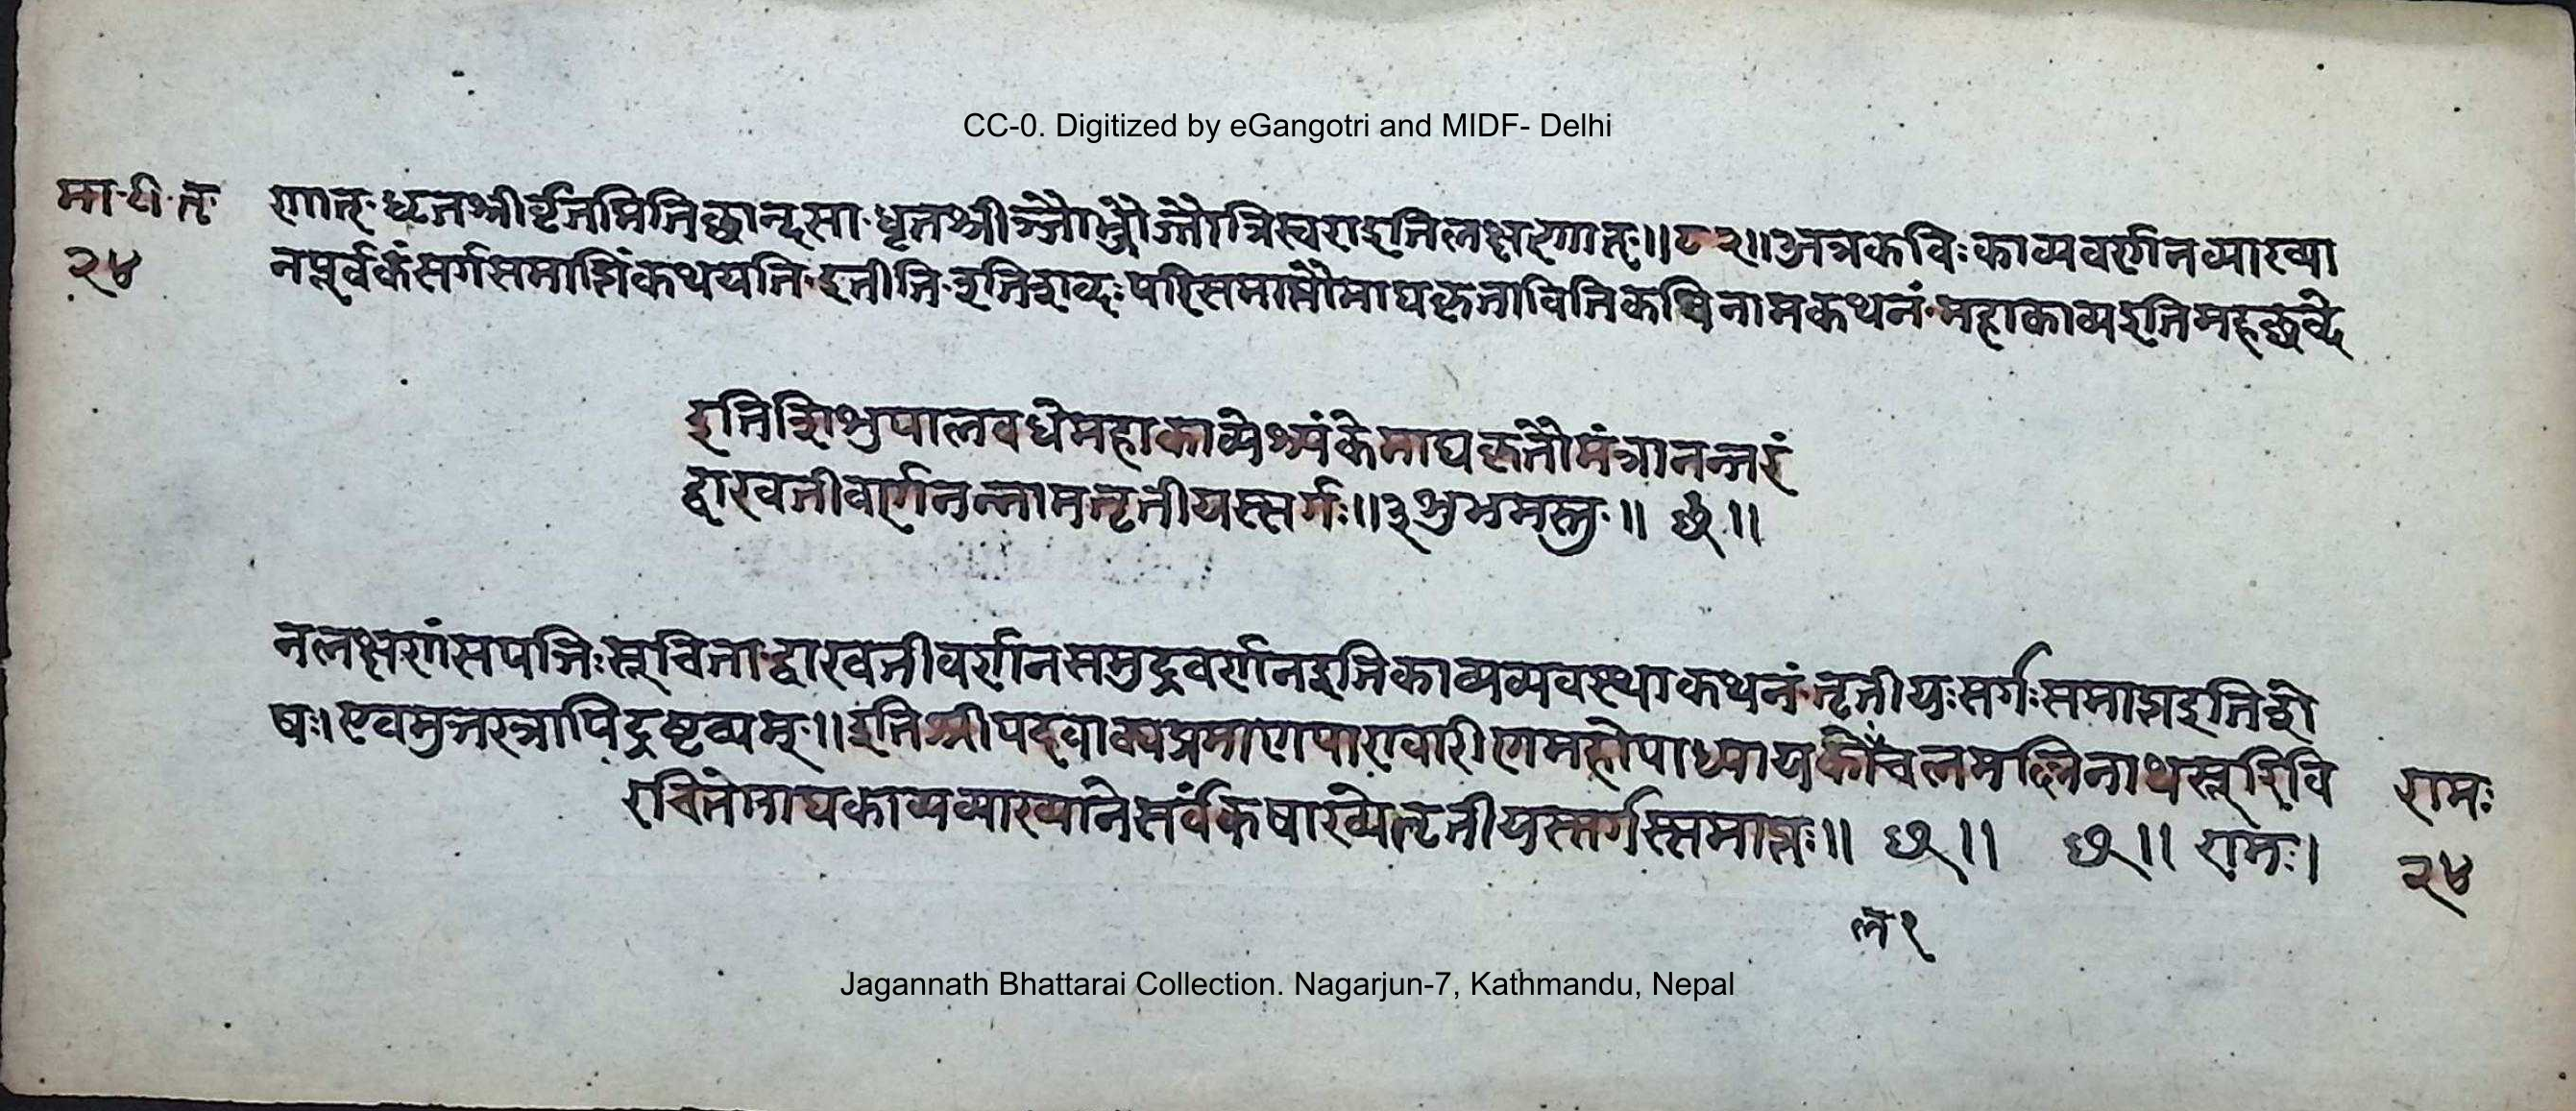 CC-0. Digitized by eGangotri and MIDF- Delhi
मा॰ टी॰ तृ॰ णात्· धृतश्रीर्वृत्तमिति छान्दसा· धृतश्री र्न्जौ भ्जौ ज्जौ त्रिस्वरा इति लक्षणात्॥८२॥ अत्र कविः काव्यवर्णनव्याख्या
२४ नपूर्वकं सर्गसमाप्तिं कथयति· इतीति· इतिशब्दः परिसमाप्तौ माघकृताविति कविनामकथनं· महाकाव्य इति महच्छब्दे
इति शिशुपालवधे महाकाव्ये श्र्यंके माघकृतौ मंत्रानन्तरं
द्वारवतीवर्णनन्नाम तृतीयस्सर्गः॥३ शुभमस्तु·॥ छ॥
न लक्षणसंपत्तिः सूचिता· द्वारवतीवर्णन समुद्रवर्णन इति काव्यव्यवस्थाकथनं· तृतीयः सर्गः समाप्त इति शे
षः। एवमुत्तरत्रापि द्रष्टव्यम्·॥ इति श्रीपदवाक्यप्रमाणपारावारीणमहोपाध्यायकोंचलमल्लिनाथसूरिवि रामः
रचिते माघकाव्यव्याख्याने सर्वंकषाख्ये तृतीयस्सर्गस्समाप्तः॥ छ॥ छ॥ रामः। २४
ल १
Jagannath Bhattarai Collection. Nagarjun-7, Kathmandu, Nepal